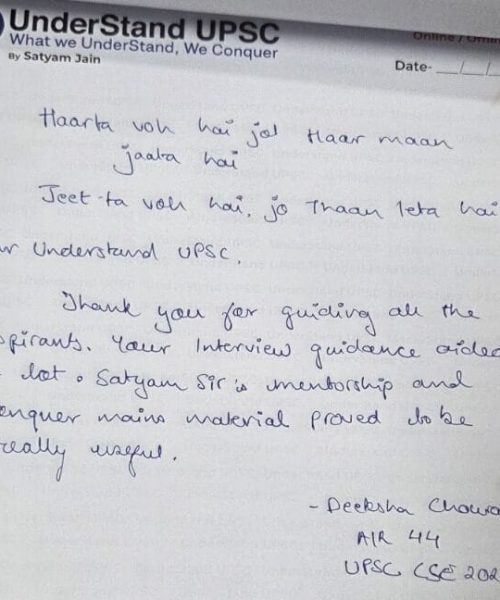 UnderStand UPSC
What we UnderStand, We Conquer
By Satyam Jain
Online /
Date- __/__/
Haarta voh hai jo Haar maan
jaata hai
Jeet-ta voh hai, jo Thaan leta hai
Understand UPSC.
Thank you for guiding all the
pirants. Your Interview guidance aided
lot. Satyam Sir's mentorship and
onquer mains material proved to be
really useful.
- Deeksha Chow
AIR 44
UPSC CSE 202